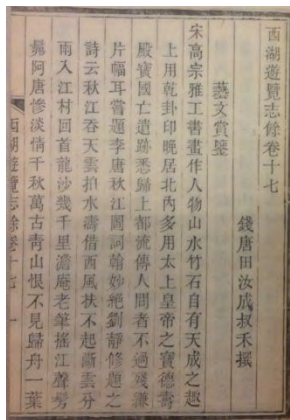 西湖遊覽志餘卷十七
錢唐田汝成叔禾撰
藝文賞鑒
宋高宗雅工書畫作人物山水竹石自有天成之趣
上用乾卦印晚居北內多用太上皇帝之寶德壽
殿寶國亡遺跡悉歸上都流傳人間者不過殘縑
片幅耳嘗題李唐秋江圖詞翰妙絕劉靜修題之
詩云秋江吞天雲拍水濤借西風扶不起斷雲分
雨入江村回首龍沙幾千里澹庵老筆搖江聲髣
髴阿唐慘淡情千秋萬古青山恨不見歸舟一葉
西湖遊覽志餘卷十七 一